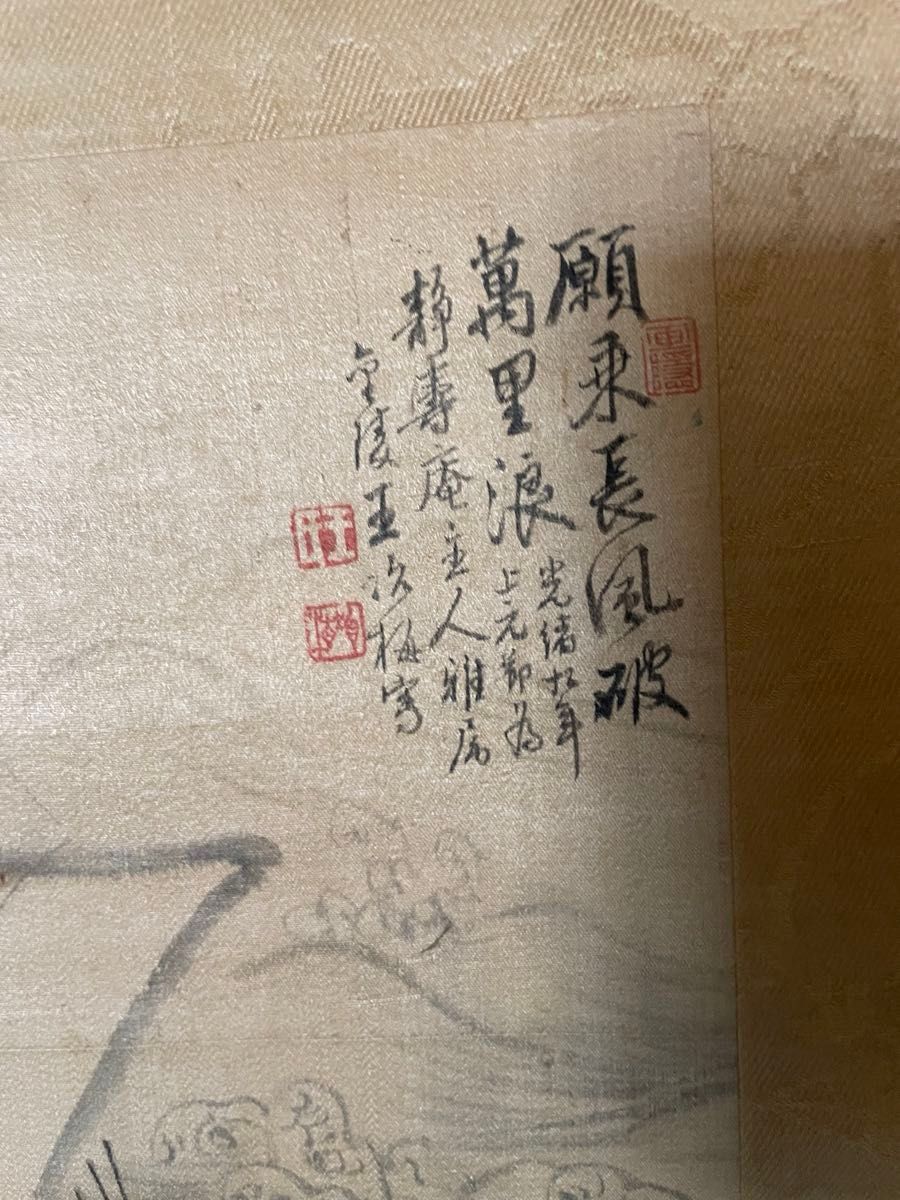 願乘長風破
萬里浪
光緒年
上元節為
静壽庵主人雅属
金陵王冶梅寫